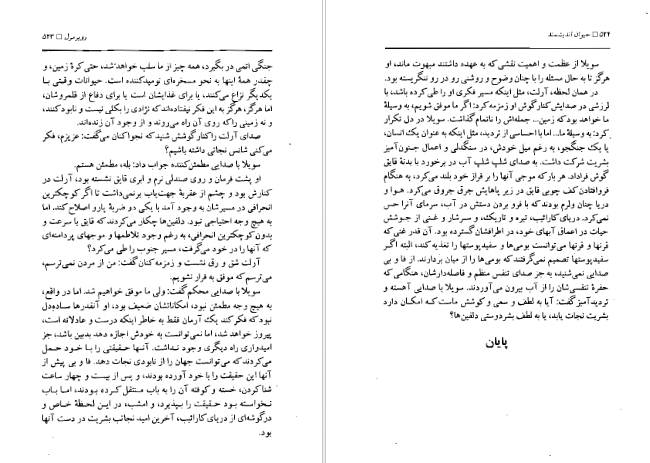 روبرمرل □ ۵۴۳
جنگی اتمی در بگیرد، همه چیز از ما سلب خواهد شد، حتی کرهٔ زمین، و
چقدر همهٔ اینها به نحو مسخره‌ای نومیدکننده است. حیوانات وقتی با
یکدیگر نزاع می‌کنند، یا برای غذایشان است یا برای دفاع از قلمروشان،
اما هرگز، هرگز به این فکر نیفتاده‌اند که نژادی را بکلی نیست و نابود کنند،
و نه زمینی را که روی آن راه می‌روند و از وجود آن زنده‌اند.
صدای آرلت را کنار گوشش شنید که نجواکنان می‌گفت: عزیزم، فکر
می‌کنی شانس نجاتی داشته باشیم؟
سویلا با صدایی مطمئن‌کننده جواب داد: بله، مطمئن هستم.
او پشت فرمان و روی صندلی نرم و ابری قایق نشسته بود، آرلت در
کنارش بود و چشم از عقربهٔ جهت‌یاب برنمی‌داشت تا اگر کوچکترین
انحرافی در مسیرشان به وجود آمد با یکی دو ضربهٔ پارو اصلاح کند، اما
به هیچ وجه احتیاجی نبود. دلفین‌ها چکار می‌کردند که قایق با سرعت و
بدون کوچکترین انحرافی، به رغم وجود تلاطمها و موجهای پردامنه‌ای
که آنها را در خود می‌گرفت، مسیر جنوب را طی می‌کرد؟
آرلت شق و رق نشست و زمزمه کنان گفت: من از مردن نمی‌ترسم،
می‌ترسم که موفق به فرار نشویم.
سویلا با صدایی محکم گفت: ولی ما موفق خواهیم شد. اما در واقع،
به هیچ وجه مطمئن نبود، امکاناتشان ضعیف بود، او آنقدرها ساده‌دل
نبود که فکر کند یک آرمان فقط به خاطر اینکه درست و عادلانه است،
پیروز خواهد شد، اما نمی‌توانست به خودش اجازه دهد بدبین باشد، جز
امیدواری راه دیگری وجود نداشت. آنها حقیقتی را با خود حمل
می‌کردند که می‌توانست جهان را از نابودی نجات دهد. فا و بی پیش از
آنها این حقیقت را با خود آورده بودند، و پس از بیست و چهار ساعت
شنا کردن، خسته و کوفته آن را به باب منتقل کرده بودند، اما باب
نخواسته بود حقیقت را بپذیرد، و امشب، در این لحظهٔ خاص و
در گوشه‌ای از دریای کارائیب، آخرین امید نجات بشریت در دست آنها
بود.
۵۴۴ □ حیوان اندیشمند
سویلا از عظمت و اهمیت نقشی که به عهده داشتند مبهوت ماند، او
هرگز تا به حال مسئله را با چنان وضوح و روشنی رو در رو ننگریسته بود.
در همان لحظه، آرلت، مثل اینکه مسیر فکری او را طی کرده باشد، با
لرزشی در صدایش کنار گوش او زمزمه کرد: اگر ما موفق شویم، به وسیلهٔ
ما خواهد بود که زمین... جمله‌اش را ناتمام گذاشت. سویلا در دل تکرار
کرد: به وسیلهٔ ما... اما با احساسی از تردید، مثل اینکه به عنوان یک انسان،
یا یک جنگجو، به رغم میل خودش، در سنگدلی و اعمال جنون‌آمیز
بشریت شرکت داشت. به صدای شلپ شلپ آب در برخورد با بدنهٔ قایق
گوش فرا داد. هر بار که موجی آنها را بر فراز خود بلند می‌کرد، به هنگام
فروافتادن کف چوبی قایق در زیر پاهایش جرق جروق می‌کرد. هوا و
دریا چنان ولرم بودند که با فرو بردن دستش در آب، سرمای آنرا حس
نمی‌کرد. دریای کارائیب، تیره و تاریک، و سرشار و غنی از جوشش
حیات در اعماق آبهای خود، در اطرافشان گسترده بود. آن قدر غنی که
قرنها و قرنها می‌توانست بومی‌ها و سفیدپوستها را تغذیه کند، البته اگر
سفیدپوستها تصمیم نمی‌گرفتند که بومی‌ها را از میان بردارند. از فا و بی
صدایی نمی‌شنید، به جز صدای تنفس منظم و فاصله‌دارشان، هنگامی که
حفرهٔ تنفسی‌شان را از آب بیرون می‌آوردند. سویلا با صدایی آهسته و
تردیدآمیز گفت: آیا به لطف و سعی و کوشش ماست که امکان دارد
بشریت نجات یابد، یا به لطف بشردوستی دلفین‌ها؟
پایان